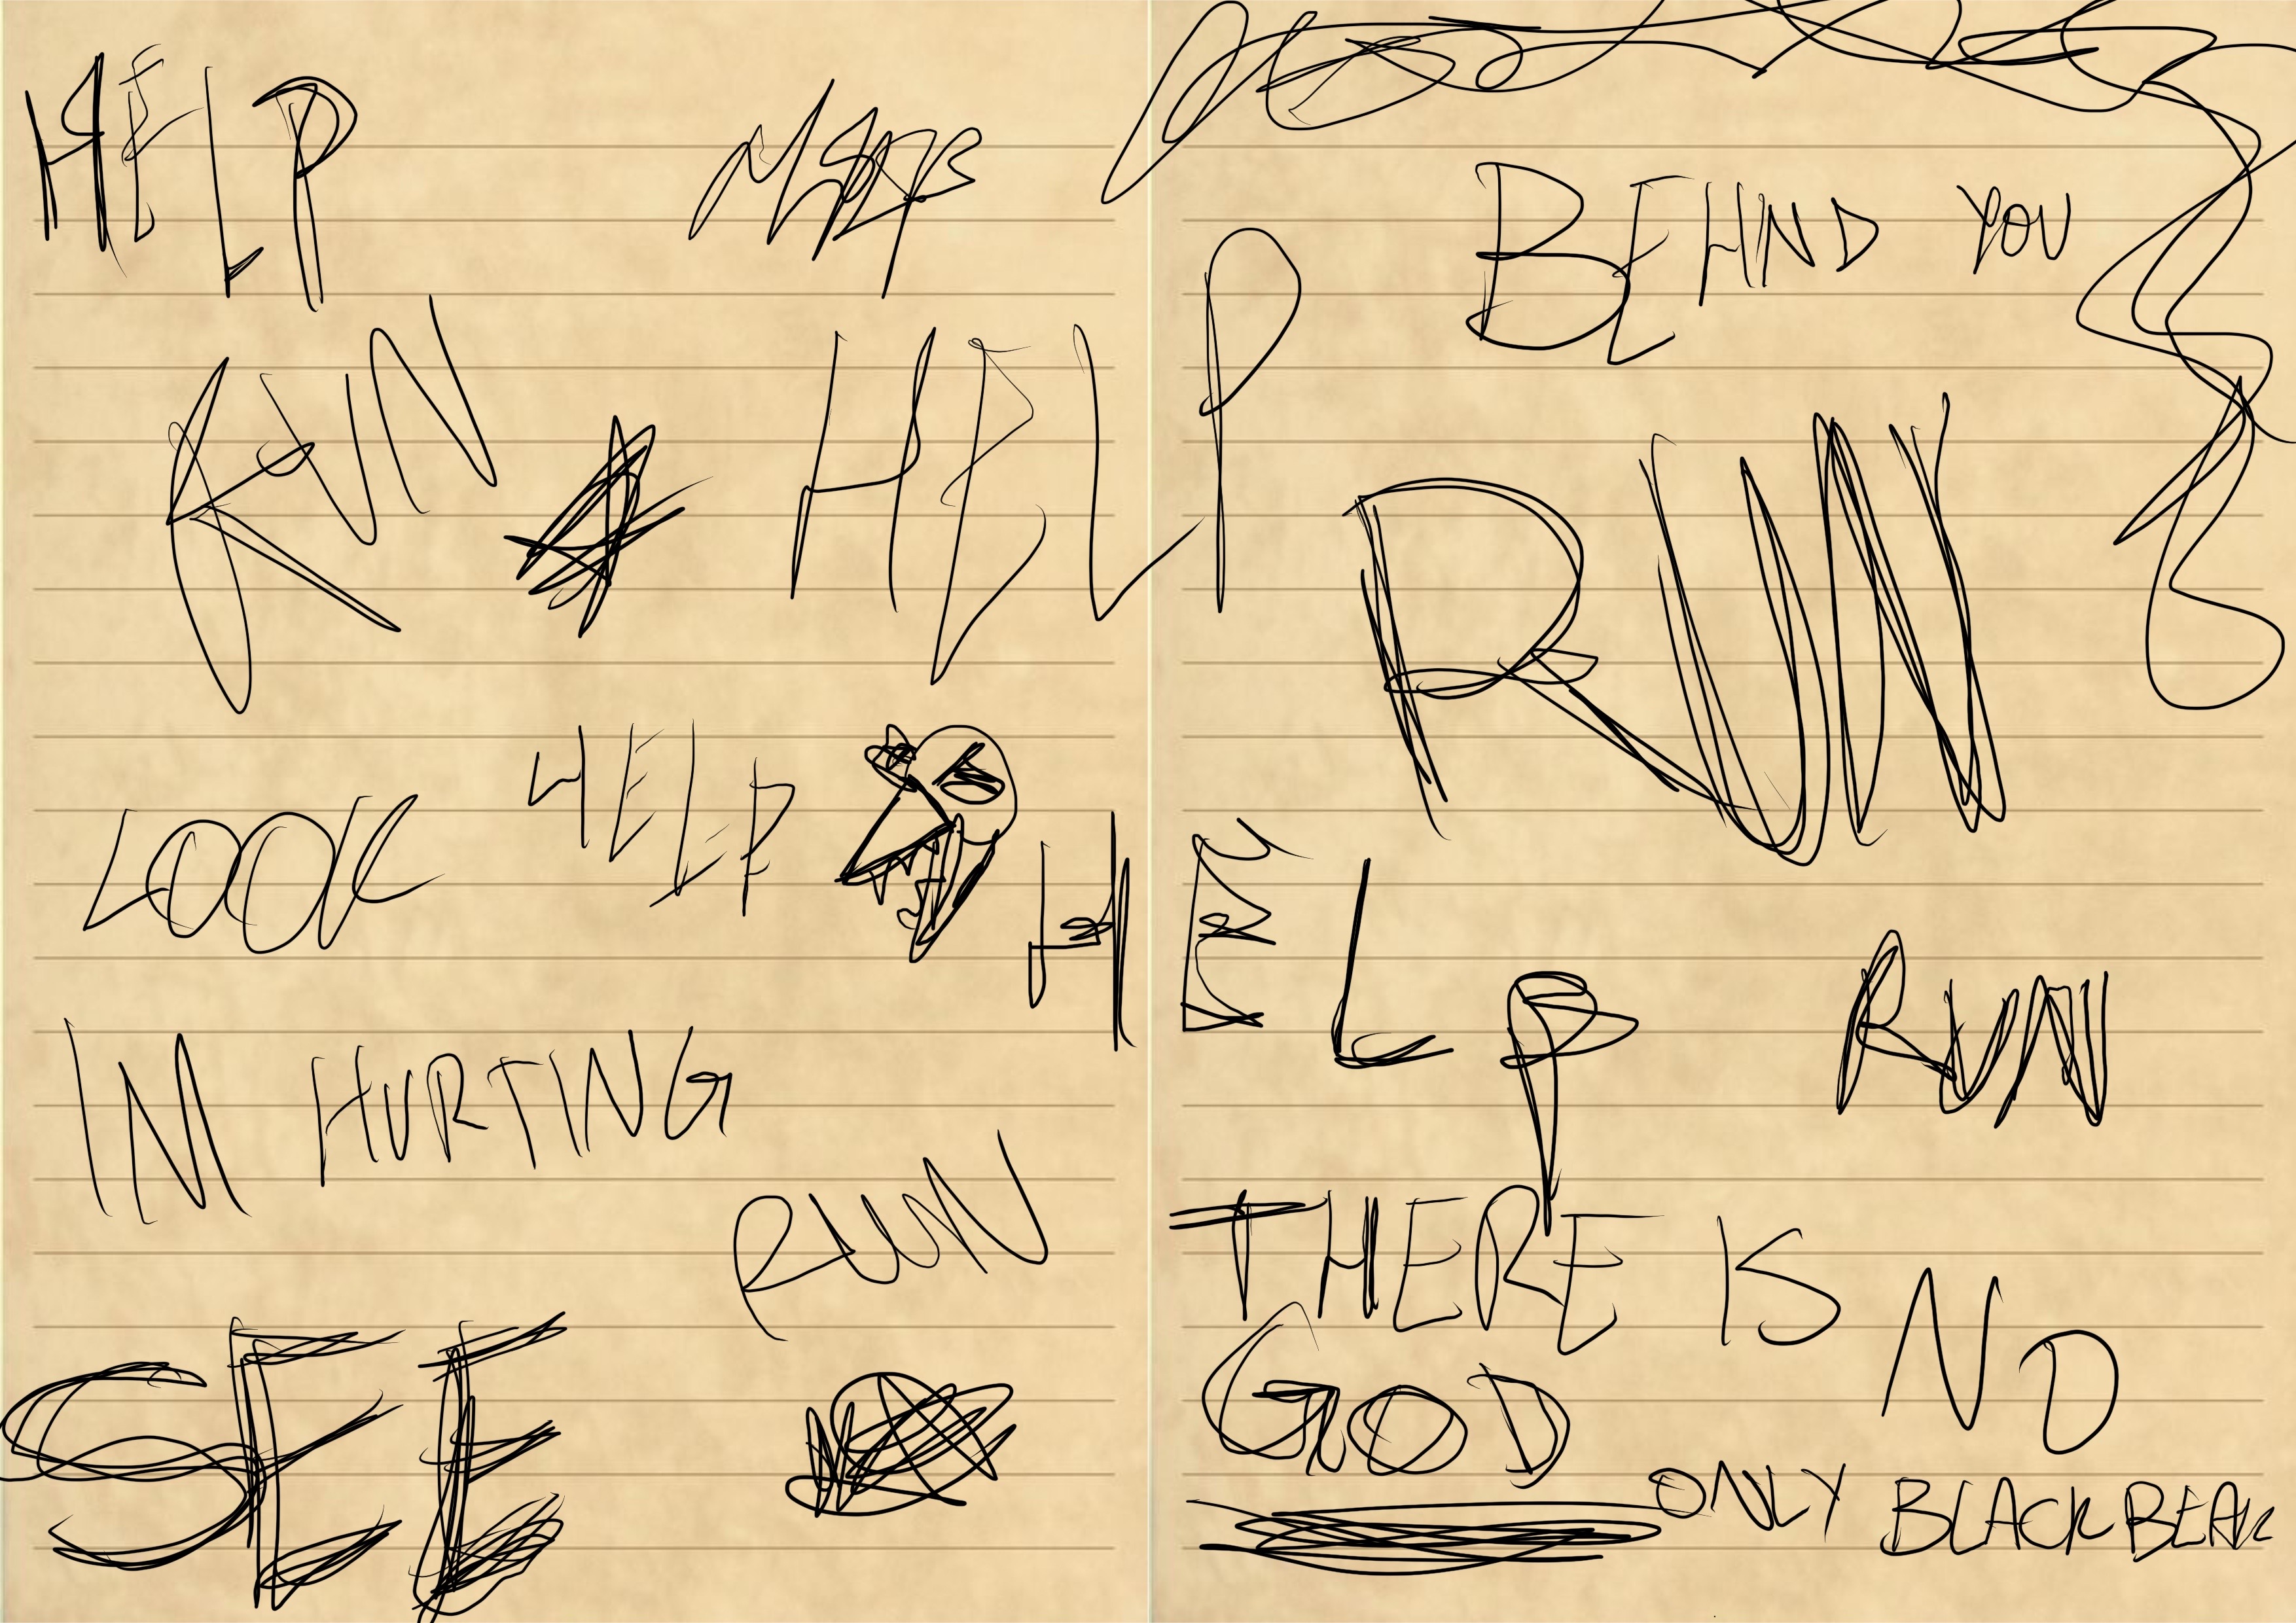 HELP
RUN
HELP
HELP
LOOK
IM HURTING
RUN
SEE
BEHIND YOU
RUN
HELP
RUN
THERE IS NO
GOD
ONLY BLACKBEAK